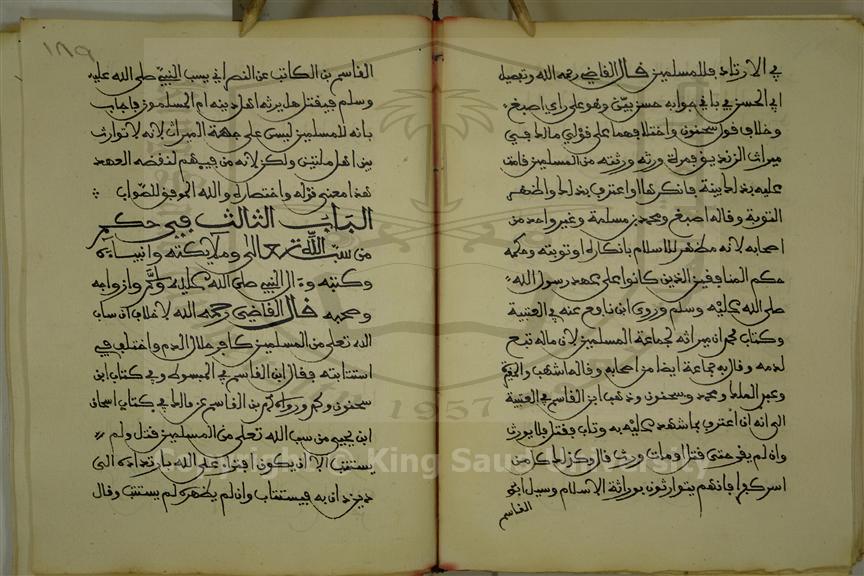 في الارتداد فللمسلمين قال القاضي رحمه الله وتفصيل
ابي الحسن في باقي جوابه حسن بين وهو على راي اصبغ
وخلاف قول سحنون واختلافهما على قولي مالك في
ميراث الزنديق فمرة ورثه ورثته من المسلمين قامت
عليه بذلك بينة فانكرها او اعترف بذلك واظهر
التوبة وقاله اصبغ ومحمد بن مسلمة وغير واحد من
اصحابه لانه مظهر للاسلام بانكاره او توبته وحكمه
حكم المنافقين الذين كانوا على عهد رسول الله
صلى الله عليه وسلم وروى ابن نافع عنه في العتبية
وكتاب محمد ان ميراثه لجماعة المسلمين لان ماله تبع
لدمه وقال به جماعة ايضا من اصحابه وقاله اشهب والمغيرة
وعبد الملك ومحمد وسحنون وذهب ابن القاسم في العتبية
الى انه ان اعترف بما شهد عليه به وتاب فقتل فلا يورث
وان لم يقر حتى قتل او مات ورث قال وكذلك كل من
اسر كفرا فانهم يتوارثون بوراثة الاسلام وسيل ابو
القاسم
١٨٩
القاسم بن الكاتب عن النصراني يسب النبي صلى الله عليه
وسلم فيقتل هل يرثه اهل دينه ام المسلمون فاجاب
بانه للمسلمين ليس على جهة الميراث لانه لا توارث
بين اهل ملتين ولكن لانه من فيهم لنقضه العهد
هذا معنى قوله واختصاره والله الموفق للصواب
الباب الثالث في حكم
من سب الله تعالى وملايكته وانبياءه
وكتبه وءال النبي صلى الله عليه وسلم وازواجه
وصحبه قال القاضي رحمه الله لا خلاف ان ساب
الله تعلى من المسلمين كافر حلال الدم واختلف في
استتابته فقال ابن القاسم في المبسوط وفي كتاب ابن
سحنون ومحمد ورواه ابن القاسم عن مالك في كتاب اسحاق
ابن يحيى من سب الله تعلى من المسلمين قتل ولم
يستتب الا ان يكون افتراء على الله بارتداده الى
دين دان به فيستتاب وان لم يظهره لم يستتب وقال
Copyright © King Saud University
1957